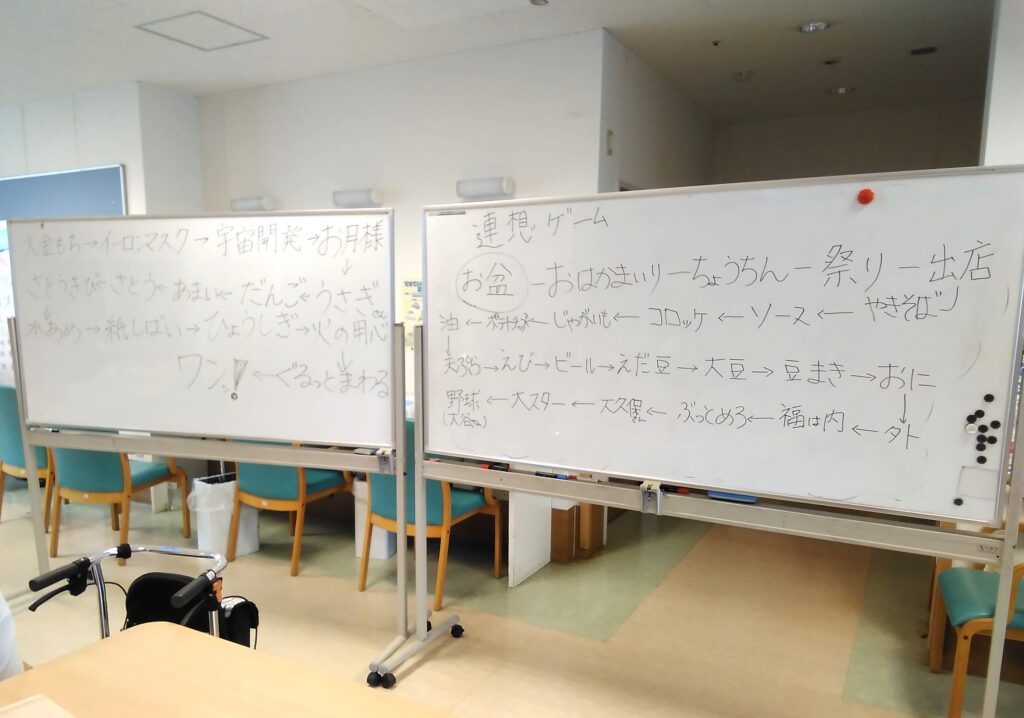 連想ゲーム
お盆－おはかまいり－ちょうちん－祭り－出店
油←ポテトチップス←じゃがいも←コロッケ←ソース←やきそば
↓
天ぷら→えび→ビール→えだ豆→大豆→豆まき→おに
↓
野球←大スター←大久保さん←ぶっとめろ←福は内←外
(大谷さん)
大金もち→イーロンマスク→宇宙開発→お月様
↓
さとうきび←さとう←あまい←だんご←うさぎ
水あめ→紙しばい→ひょうしぎ→火の用心
↓
ワンッ!←ぐるっとまわる